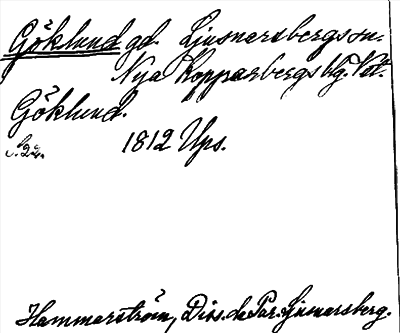 Göklund gd. Ljusnarsbergs sn.
Nya Kopparbergs bg. Vst.
Göklund.
s. 24. 1812 Ups.
Hammarström, Diss. de Par. Ljusnarsberg.